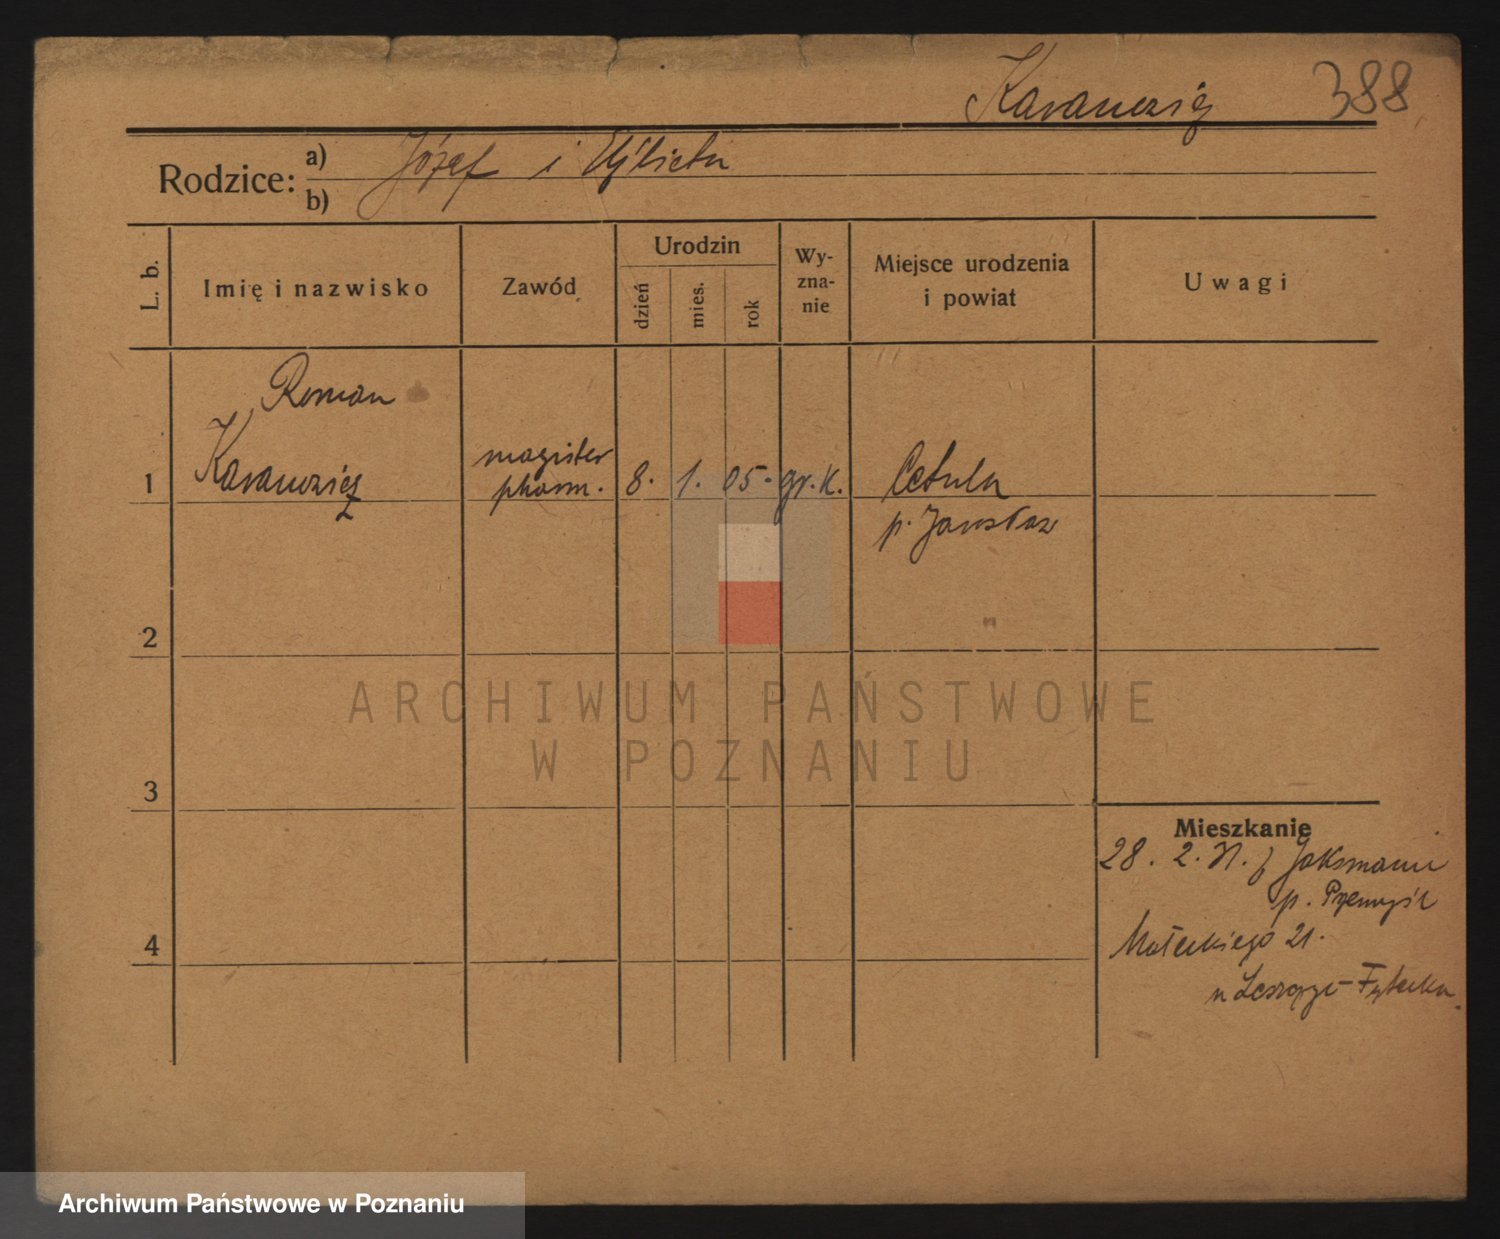 388
Rodzice: a) Józef i Elżbieta
b)
L. b.
Imię i nazwisko
Zawód
Urodzin
dzień
mies.
rok
Wy-
zna-
nie
Miejsce urodzenia
i powiat
Uwagi
Roman
1
magister
pharm.
8. 1. 05. gr. k.
Cetula
p. Jarosław
2
3
4
Mieszkanie
28. 2. z Jaksmanic
p. Przemyśl
Małeckiego 21.
u
ARCHIWUM PAŃSTWOWE
W POZNANIU
Archiwum Państwowe w Poznaniu